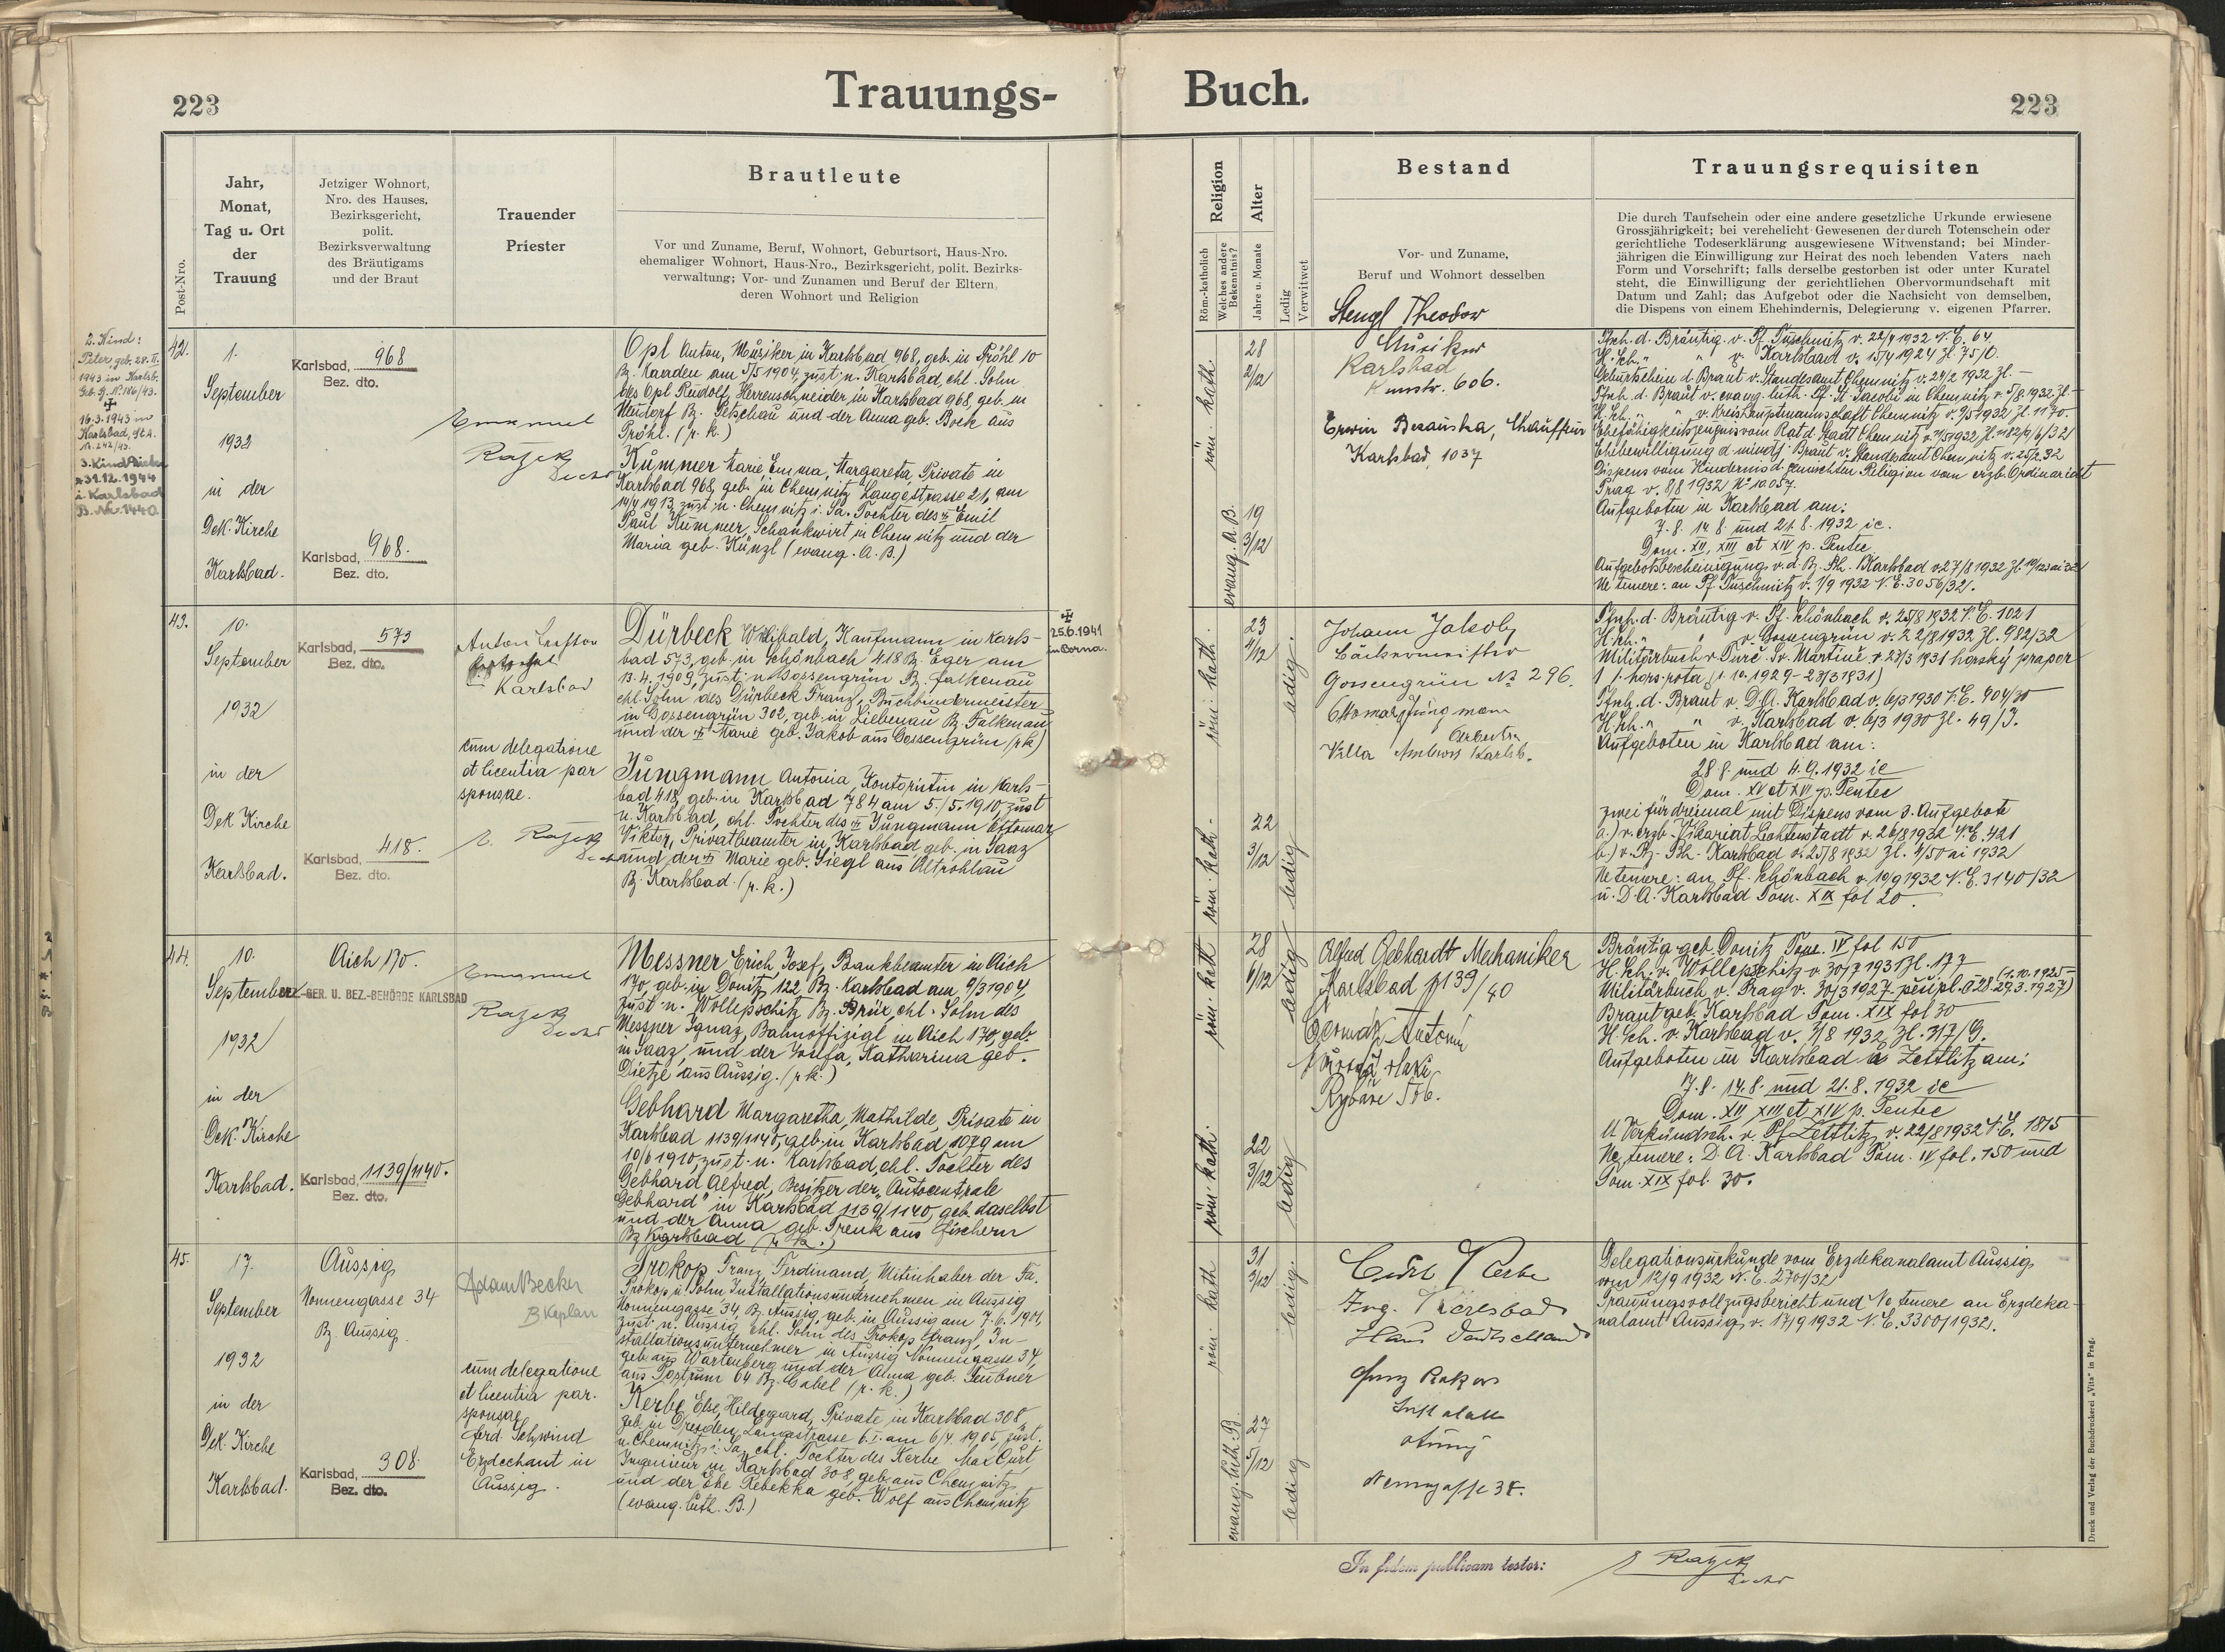 223
Trauungs-
Buch.
223
Post-Nro.
Jahr,
Monat,
Tag u. Ort
der
Trauung
Jetziger Wohnort,
Nro. des Hauses,
Bezirksgericht,
polit.
Bezirksverwaltung
des Bräutigams
und der Braut
Trauender
Priester
Brautleute
Vor und Zuname, Beruf, Wohnort, Geburtsort, Haus-Nro.
ehemaliger Wohnort, Haus-Nro., Bezirksgericht, polit. Bezirks-
verwaltung; Vor- und Zunamen und Beruf der Eltern,
deren Wohnort und Religion
Religion
Röm.-katholisch
Welches andere
Bekenntnis?
Alter
Jahre u. Monate
Ledig
Verwitwet
Bestand
Vor- und Zuname,
Beruf und Wohnort desselben
Trauungsrequisiten
Die durch Taufschein oder eine andere gesetzliche Urkunde erwiesene
Grossjährigkeit; bei verehelicht Gewesenen der durch Totenschein oder
gerichtliche Todeserklärung ausgewiesene Witwenstand; bei Minder-
jährigen die Einwilligung zur Heirat des noch lebenden Vaters nach
Form und Vorschrift; falls derselbe gestorben ist oder unter Kuratel
steht, die Einwilligung der gerichtlichen Obervormundschaft mit
Datum und Zahl; das Aufgebot oder die Nachsicht von demselben,
die Dispens von einem Ehehindernis, Delegierung v. eigenen Pfarrer.
2. Kind:
Peter, geb. 28. II.
1943 in Karlsb.
Geb. B. Nr. 186/43.
16.3.1943 in
Karlsbad, St.A.
Nr. 242/43.
3. Kind
* 31.12.1944
i. Karlsbad
B. Nr. 1440
42.
1.
September
1932
in der
Dek. Kirche
Karlsbad.
Karlsbad, 968
Bez. dto.
Karlsbad, 968.
Bez. dto.
Emanuel
Razek
Dechant
Opl Anton, Musiker in Karlsbad 968, geb. in Pröhl 10
Bz. Kaaden am 5/5 1904, zust. n. Karlsbad, ehl. Sohn
des Opl Rudolf, Herrenschneider, in Karlsbad 968, geb. in
Neudorf Bz. Petschau und der Anna geb. Bock aus
Pröhl. (r. k.)
Kummer Marie, Emma, Margareta, Private in
Karlsbad 968, geb. in Chemnitz Langestrasse 21, am
14/4 1913, zust. n. Chemnitz i. Sa. Tochter des Emil
Paul Kummer, Schankwirt in Chemnitz und der
Maria geb. Künzl (evang. A. B.)
röm. kath.
evang. A. B.
28
2/12
19
3/12
Stengl Theodor
Musiker
Karlsbad
606.
Erwin Chauffeur
Karlsbad, 1037
Pfrsch. d. Bräutig. v. Pf. Tuschmitz v. 22/4 1932 N.E. 64.
H. Sch. " " v. Karlsbad v. 15/4 1924 Zl. 75/0.
Geburtschein d. Braut v. Standesamt Chemnitz v. 24/2 1932 Zl. -
Pfrsch. d. Braut v. evang.-luth. Pf. St. Jacobi in Chemnitz v. 5/8 1932 Zl. -
H. Sch. " " v. Kreishauptmannschaft Chemnitz v. 9/5 1932 Zl. 1170-
Ehefähigkeitszeugnis vom Rat d. Stadt Chemnitz
Ehebewilligung d. mindj. Braut v. Standesamt Chemnitz v. 25/2 32
Dispens vom Hindernis d. gemischten Religion vom erzb. Ordinariat
Prag v. 8/8 1932 No 10.057.
Aufgeboten in Karlsbad am:
7. 8. 14. 8. und 21. 8. 1932 ie.
Dom. XII, XIII et XIV p. Pentec.
Aufgebotsbescheinigung v. d. Bz. Bh. Karlsbad v. 27/8 1932
Ne temere: an Pf. Tuschmitz v. 1/9 1932 N.E. 3056/32.
43.
10.
September
1932
in der
Dek Kirche
Karlsbad.
Karlsbad, 573
Bez. dto.
Karlsbad, 418.
Bez. dto.
Anton
Karlsbad
cum delegatione
et licentia par
sponsae.
E. Razek
Dechant
Dürbeck Willibald, Kaufmann in Karls-
bad 573, geb. in Schönbach 418 Bz. Eger am
13. 4. 1909, zust. n. Gossengrün Bz. Falkenau
ehl. Sohn des Dürbeck Franz, Buchbindermeister
in Gossengrün 302, geb. in Liebenau Bz. Falkenau
und der Marie geb. Jakob aus Gossengrün (r. k.)
25.6.1941
in Borna.
Jungmann Antonia, Kontoristin in Karls-
bad 418, geb. in Karlsbad 784 am 5./5. 1910, zust.
n. Karlsbad, ehl. Tochter des Jungmann Ottomar
Viktor, Privatbeamter in Karlsbad geb. in Saaz
und der Marie geb. Siegl aus Altrohlau
Bz. Karlsbad. (r. k.)
röm. kath.
röm. kath.
23
4/12
22
3/12
ledig.
ledig
Johann Jakob
Bäckermeister
Gossengrün No 296.
Ottomar Jungmann
Villa Ambros Karlsb.
Pfrsch. d. Bräutig. v. Pf. Schönbach v. 25/8 1932 N.E. 1021
H. Sch. " " v. Gossengrün v. 22/8 1932 Zl. 982/32
Militärbuch v. Turč. Sv. Martině v. 27/3 1931 horský prapor
1 p. hors. rota (1. 10. 1929 - 27/3 1931)
Pfrsch. d. Braut v. D.A. Karlsbad v. 6/3 1930 N.E. 904/30
H. Sch. " " v. Karlsbad v. 6/3 1930 Zl. 49/3.
Aufgeboten in Karlsbad am:
28. 8. und 4. 9. 1932 ie
Dom. XV et XVI p. Pentec
zwei für dreimal mit Dispens vom 3. Aufgebote
a.) v. erzb. Vikariat Lichtenstadt v. 26/8 1932 N.E. 421
b.) v. Bz. Bh. Karlsbad v. 25/8 1932 Zl. 4/50 ai 1932
Ne temere: an Pf. Schönbach v. 10/9 1932 N.E. 3140/32
u. D.A. Karlsbad Tom. XIX fol 20.
44.
10.
September
1932
in der
Dek. Kirche
Karlsbad.
Aich 170.
BEZ.-GER. U. BEZ.-BEHÖRDE KARLSBAD
Karlsbad, 1139/1140.
Bez. dto.
Emanuel
Razek
Dechant
Messner Erich, Josef, Bankbeamter in Aich
170, geb. in Donitz 122, Bz. Karlsbad am 9/3 1904,
zust. n. Wollepschitz Bz. Brüx, ehl. Sohn des
Messner Ignaz, Bahnoffizial in Aich 170, geb.
in Saaz, und der Josefa, Katharina geb.
Dietze aus Aussig. (r. k.)
Gebhard Margaretha, Mathilde, Private in
Karlsbad 1139/1140, geb. in Karlsbad 1079 am
10/6 1910, zust. n. Karlsbad, ehl. Tochter des
Gebhard Alfred, Besitzer der „Autocentrale
Gebhard" in Karlsbad 1139/1140, geb. daselbst
und der Anna geb. Trenk aus Fischern
Bz Karlsbad (r. k.)
röm. kath
röm. kath.
28
6/12
22
3/12
ledig
ledig
Alfred Gebhardt Mechaniker
Karlsbad 1139/40
Antonín
Rybáře 556.
Bräutig. geb. Donitz Tom. IV fol 150
H. Sch. v. Wollepschitz v. 30/7 1931 Zl. 177
Militärbuch v. Prag v. 30/3 1927 (1. 10. 1925 - 29. 3. 1927)
Braut geb. Karlsbad Tom. XIX fol 30
H. Sch. v. Karlsbad v. 3/8 1932 Zl. 317/G.
Aufgeboten in Karlsbad u. Zettlitz am:
7. 8. 14. 8. und 21. 8. 1932 ie
Dom. XII, XIII et XIV p. Pentec
lt. Verkündsch. v. Pf. Zettlitz v. 22/8 1932 N.E. 1815
Ne temere: D. A. Karlsbad Tom. IV fol. 150 und
Tom. XIX fol. 30.
45.
17.
September
1932
in der
Dek. Kirche
Karlsbad.
Aussig
Nonnengasse 34
Bz. Aussig.
Karlsbad, 308.
Bez. dto.
Adam Becker
B Kaplan
cum delegatione
et licentia par.
sponsae
Ferd. Schwind
Erzdechant in
Aussig.
Prokop Franz, Ferdinand, Mitinhaber der Fa.
Prokop u. Sohn, Installationsunternehmen in Aussig
Nonnengasse 34, Bz. Aussig, geb. in Aussig am 7. 6. 1901,
zust. n. Aussig, ehl. Sohn des Prokop Franz, In-
stallationsunternehmer in Aussig Nonnengasse 34,
geb. aus Wartenberg und der Anna geb. Teubner
aus Postrum 64 Bz. Gabel (r. k.)
Kerbe Else, Hildegard, Private in Karlsbad 308,
geb. in Dresden, Langestrasse 6. I. am 6/4. 1905, zust.
n. Chemnitz i. Sa. ehl. Tochter des Kerbe Max Curt,
Ingenieur in Karlsbad 308, geb. aus Chemnitz,
und der Ehe Rebekka geb. Wolf aus Chemnitz
(evang. luth. B.)
röm. kath
evang. luth. B.
31
3/12
27
5/12
ledig.
ledig
Curt Kerbe
Ing. Karlsbad
Haus Deutschland
Franz Prokop
Nonnengasse 34.
Delegationsurkunde vom Erzdekanalamt Aussig
vom 12/9 1932 N. E. 2701/32
Trauungsvollzugsbericht und Ne temere an Erzdeka-
nalamt Aussig v. 17/9 1932 N. E. 3300/1932.
In fidem publicam testor:
E Razek
Dechant
Druck und Verlag der Buchdruckerei „Vita" in Prag.